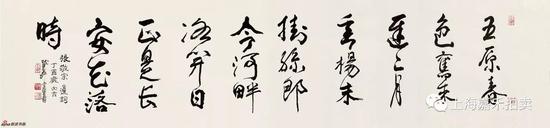 五原春
色舊來
遲二月
垂楊未
掛絲即
今河畔
冰開日
正是長
安花落
時
張敬忠 邊詞
丁酉歲
上海嘉禾拍卖